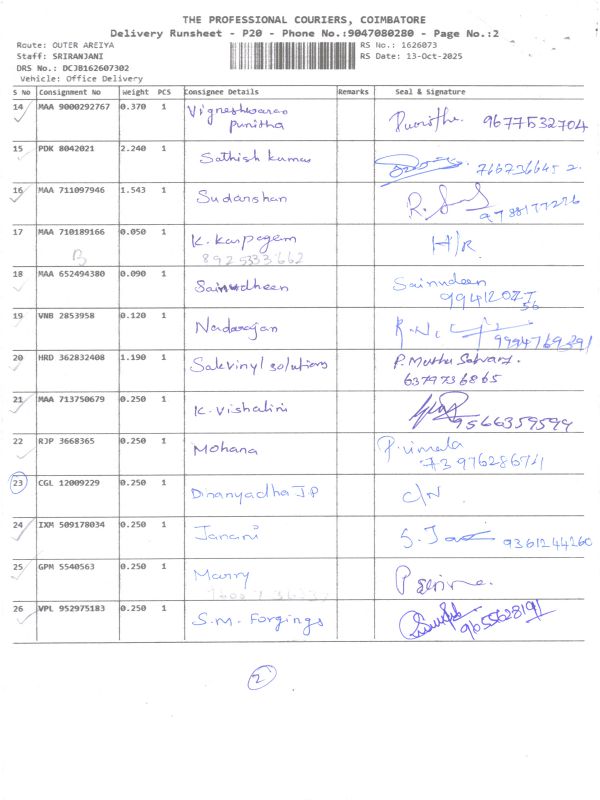 THE PROFESSIONAL COURIERS, COIMBATORE
Delivery Runsheet - P20 - Phone No.:9047080280 - Page No.:2
Route: OUTER AREIYA RS No.: 1626073
Staff: SRIRANJANI RS Date: 13-Oct-2025
DRS No.: DCJB162607302
Vehicle: Office Delivery
S No Consignment No Weight PCS Consignee Details Remarks Seal & Signature
14 MAA 9000292767 0.370 1 Vigneshwaran Punitha 9677532704
punitha
15 PDK 8042021 2.240 1 Sathish kumar 766736645 2
16 MAA 711097946 1.543 1 Sudarshan 9788177276
17 MAA 710189166 0.050 1 K. Karpagam H/R
B 8925333662
18 MAA 652494380 0.090 1 Sainudheen Sainudeen
56
19 VNB 2853958 0.120 1 Nadarajan 9994769391
20 HRD 362832408 1.190 1 Sakvinyl solutions P. Muthu
6379736865
21 MAA 713750679 0.250 1 K. Vishalini 9566359599
22 RJP 3668365 0.250 1 Mohana P. vimala
23 CGL 12009229 0.250 1 J.P C/N
24 IXM 509178034 0.250 1 Janani 9361244260
25 GPM 5540563 0.250 1 Marry
26 VPL 952975183 0.250 1 S.M. Forgings 9655628191
2